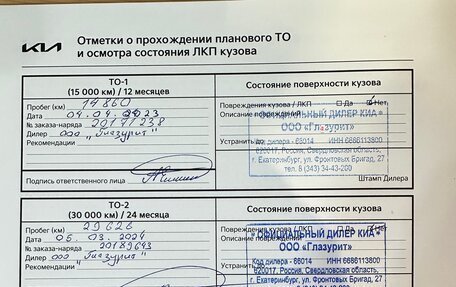 KIA
Отметки о прохождении планового ТО
и осмотра состояния ЛКП кузова
ТО-1
(15 000 км) / 12 месяцев
Состояние поверхности кузова
Пробег (км) 14860
Дата 04.04.2023
№ заказа-наряда
Дилер ООО "Глазурит"
Рекомендации
Подпись ответственного лица
Повреждения кузова / ЛКП Да Нет
Описание повреждений
Устранить до
ОФИЦИАЛЬНЫЙ ДИЛЕР КИА
ООО «Глазурит»
Код дилера - 66014 ИНН 6666113800
620017, Россия, Свердловская область,
г. Екатеринбург, ул. Фронтовых Бригад, 27
тел. 8 (343) 34-43-200
Штамп Дилера
ТО-2
(30 000 км) / 24 месяца
Состояние поверхности кузова
Пробег (км) 29626
Дата 05.03.2024
№ заказа-наряда 20189643
Дилер ООО "Глазурит"
Рекомендации
Повреждения кузова / ЛКП Да Нет
Описание
Устранить
ОФИЦИАЛЬНЫЙ ДИЛЕР КИА
ООО "Глазурит"
Код дилера - 66014 ИНН 6666113800
620017, Россия, Свердловская область,
г. Екатеринбург, ул. Фронтовых Бригад, 27